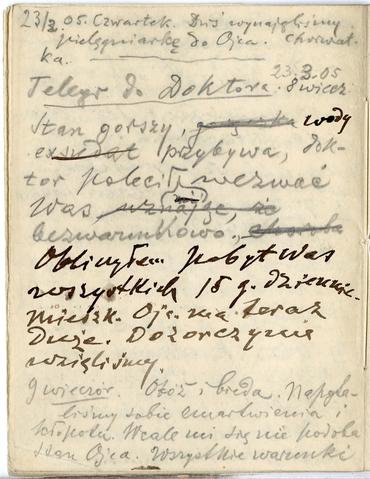 23/3 05. Czwartek. Dziś wynajęliśmy
pielęgniarkę do Ojca. Chorwat-
ka.
Telegr do Doktora. 23.3.05 8 wiecz.
Stan gorszy, gorączka wody
exsudat przybywa, dok-
tor polecił wezwać
Was
bezwarunkowo., choroba
Obliczyłem pobyt Was
wszystkich 15 g. dziennie
mieszk. Ojc. ma teraz
Duże. Dozorczynię
wzięliśmy
9 wieczór. Otóż i breda. Napyta-
liśmy sobie zmartwienia i
kłopotu. Wcale mi się nie podoba
stan Ojca. Wszystkie warunki